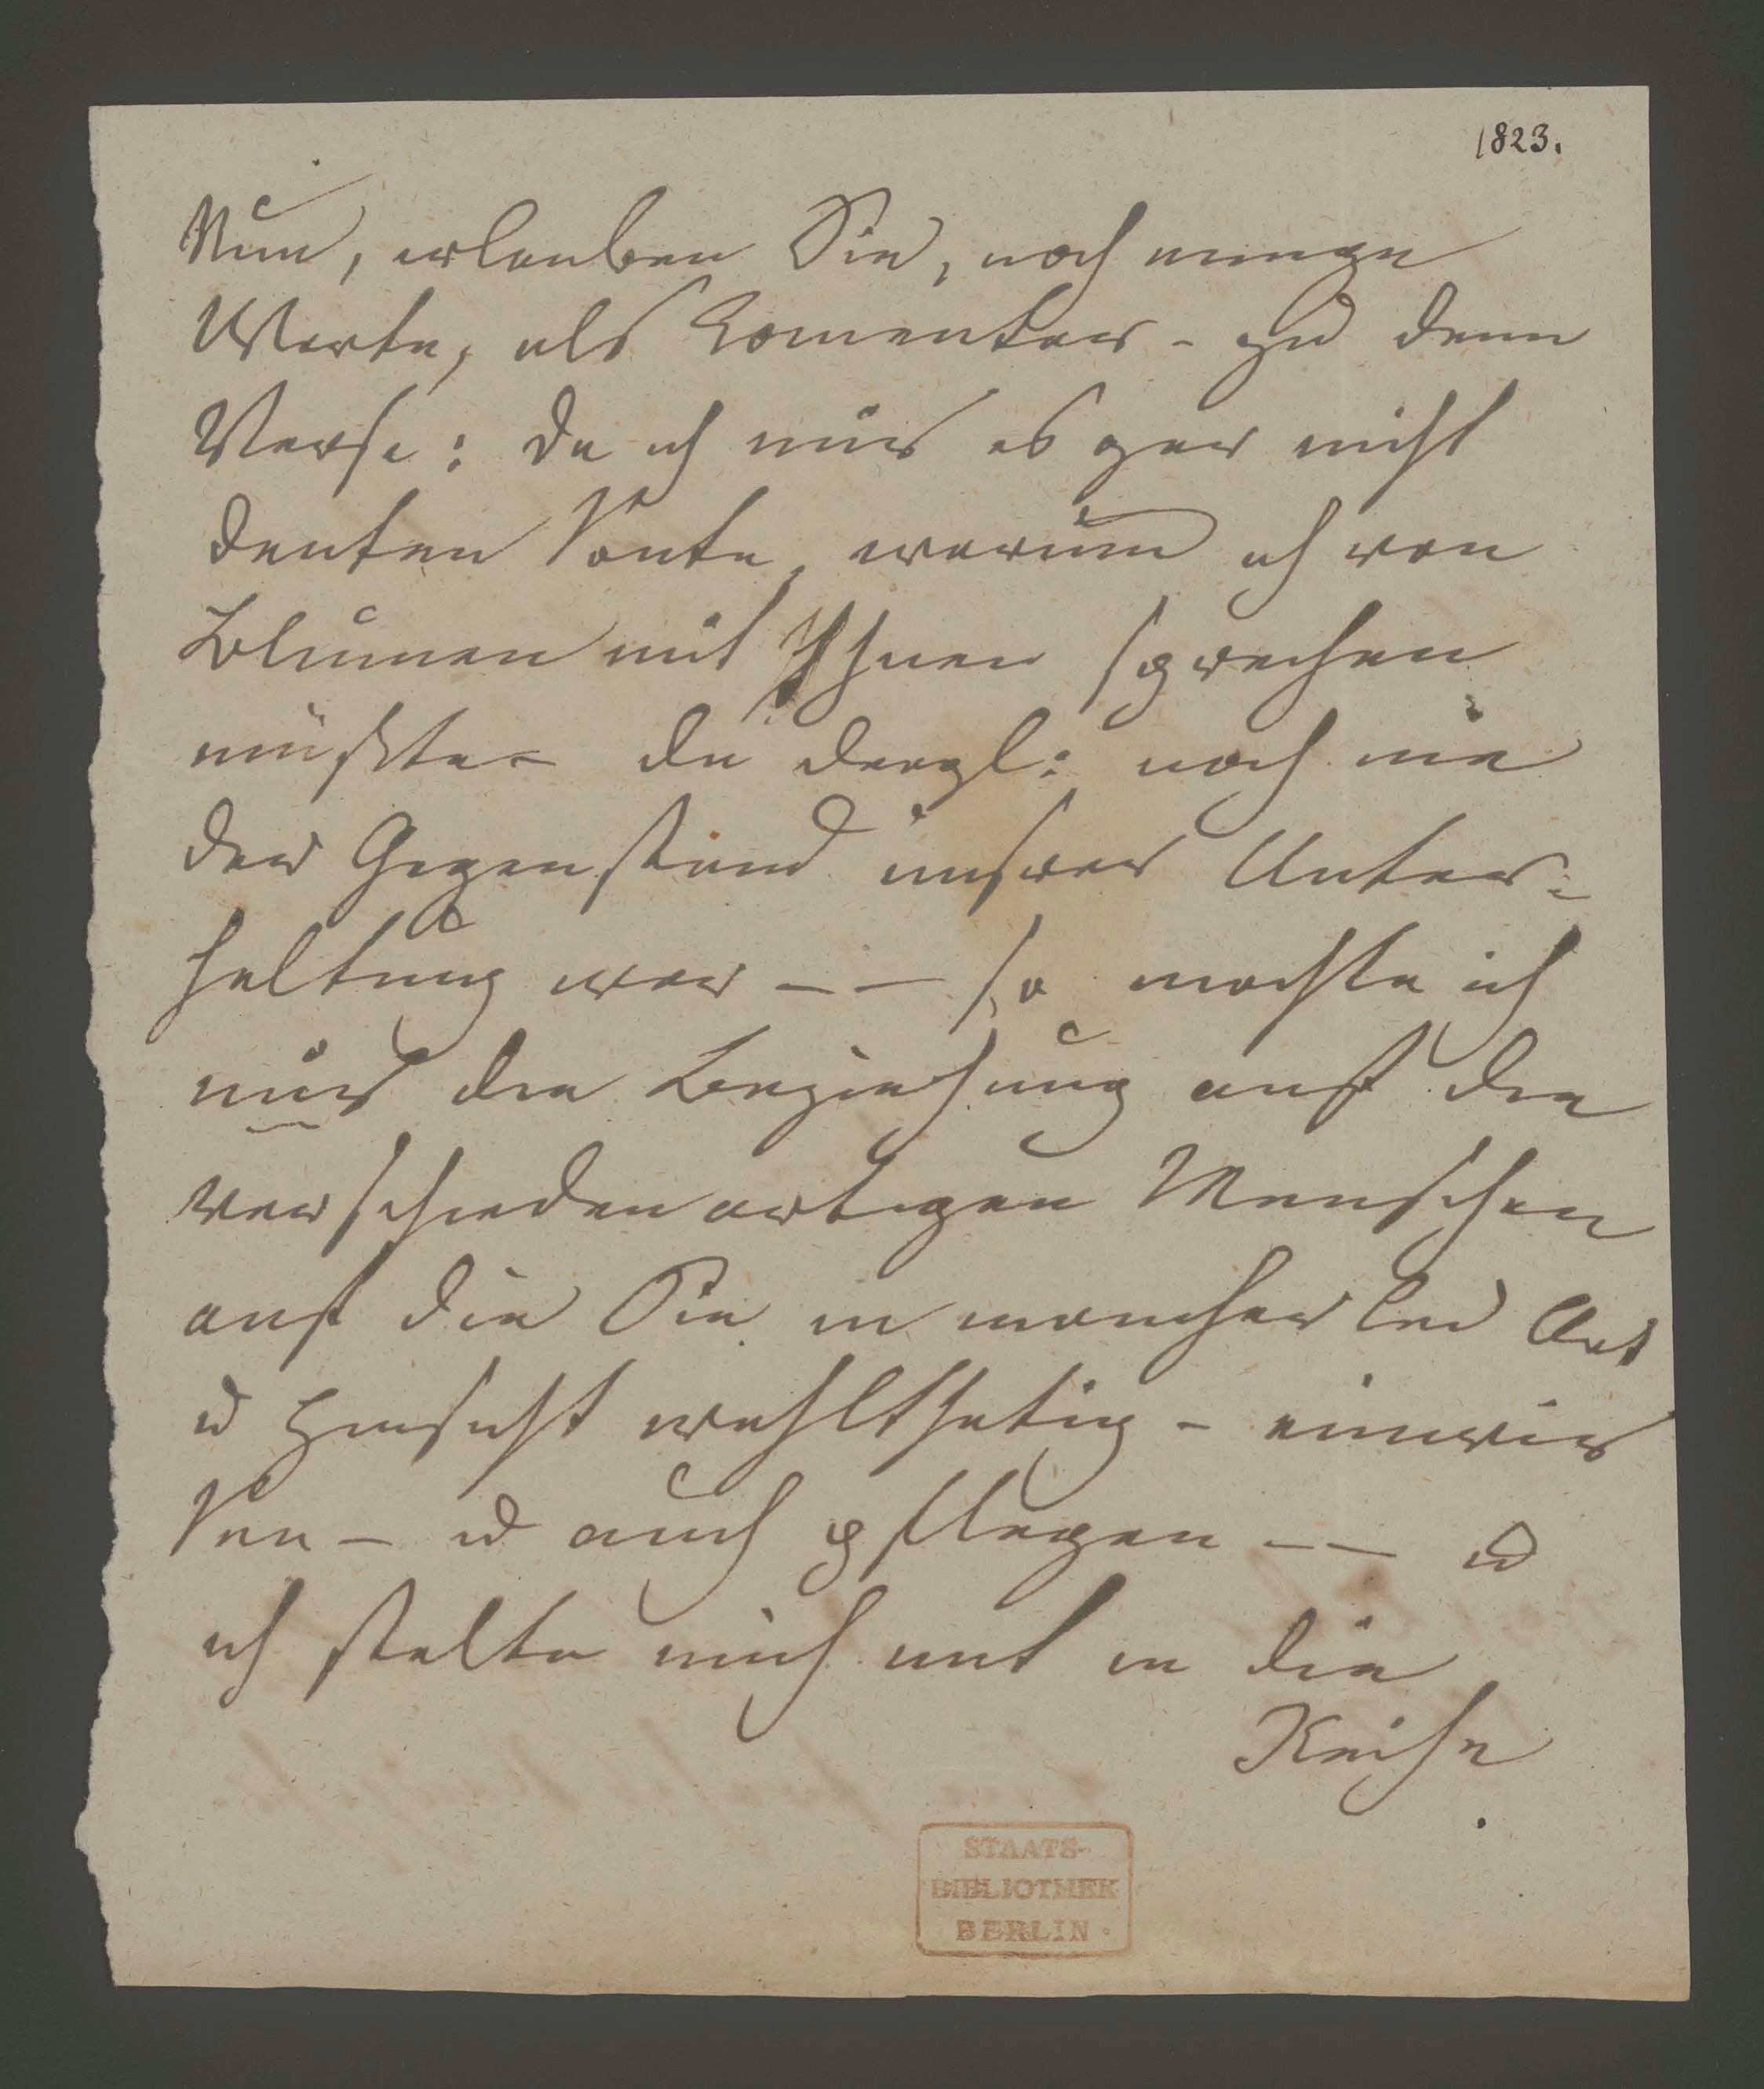 1823.
Nun, erlauben Sie, noch einige
Worte, als Comentar - zu dem
Verse: da ich mir es gar nicht
deuten konte, warum ich von
Blumen mit Ihnen sprechen
müsste - da dergl: noch nie
der Gegenstand unsrer Unter-
haltung war - - so machte ich
mir die Beziehung auf die
verschiedenartigen Menschen
auf die Sie in mancherlei Art
u Hinsicht wohlthatig - einwir
ken - u auch pflegen - - u
ich stelte mich mit in die
Reihe
STAATS-
BIBLIOTHEK
BERLIN